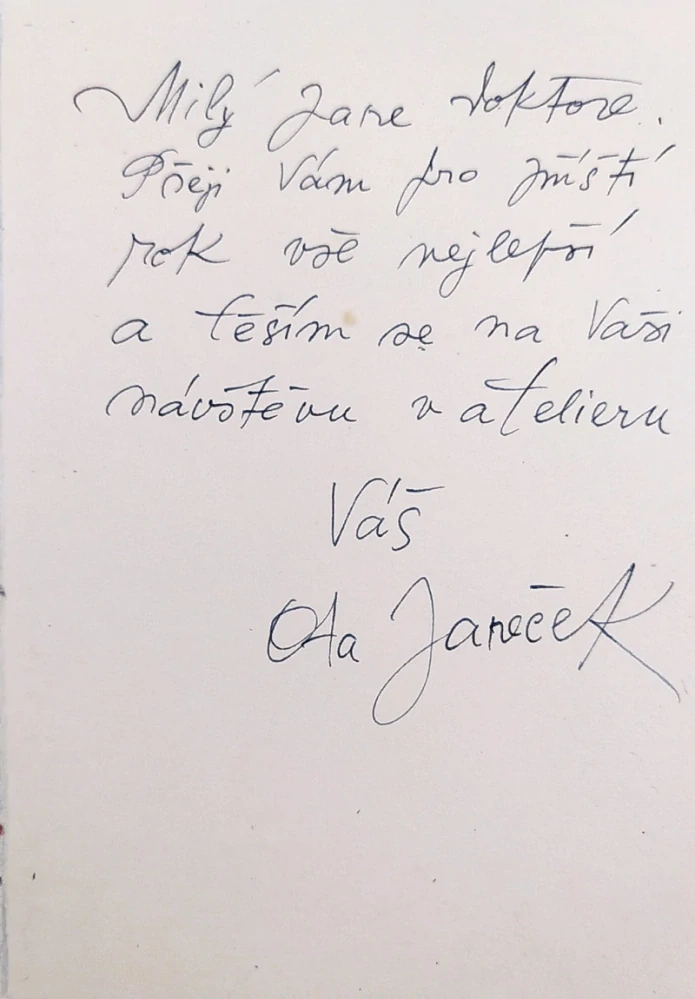 Milý Jane doktore.
Přeji Vám pro příští
rok vše nejlepší
a těším se na Vaši
návštěvu v atelieru
Váš
Ota Janeček